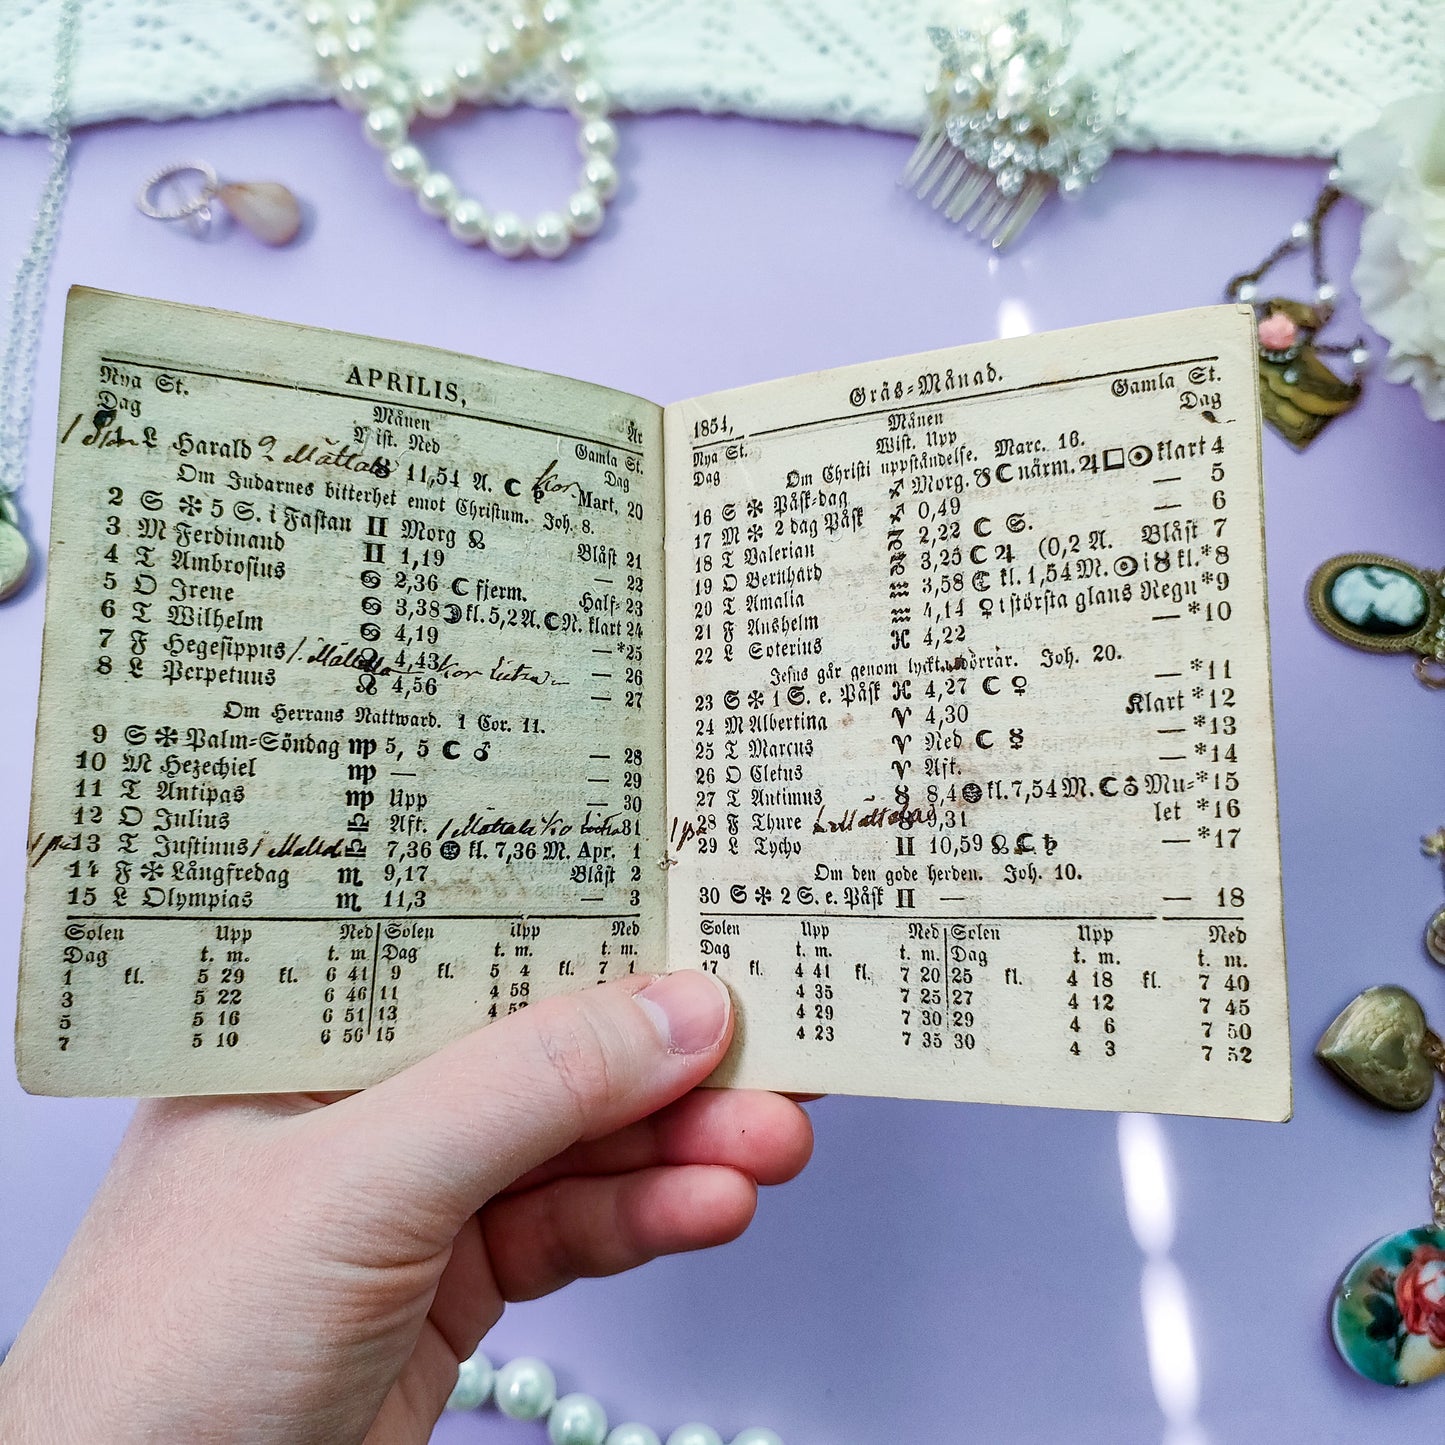 APRILIS,
Nya St. Månen Gamla St.
Dag Wist. Ned Dag
1 L Harald ♉ 11,54 A. ☾ ♄ Mart, 20
Om Judarnes bitterhet emot Christum. Joh. 8.
2 S ✻ 5 S. i Fastan ♊ Morg ☊
3 M Ferdinand ♊ 1,19 Blåst 21
4 T Ambrosius ♋ 2,36 ☾ fjerm. — 22
5 O Irene ♋ 3,38 ☽ kl. 5,2 A. ☾ N. Half- 23
6 T Wilhelm ♋ 4,19 klart 24
7 F Hegesippus ♌ 4,43 — *25
8 L Perpetuus ♌ 4,56 — 26
— 27
Om Herrans Nattward. 1 Cor. 11.
9 S ✻ Palm-Söndag ♍ 5, 5 ☾ ♂ — 28
10 M Hezechiel ♍ — — 29
11 T Antipas ♍ Upp — 30
12 O Julius ♎ Aft. 31
13 T Justinus ♎ 7,36 kl. 7,36 M. Apr. 1
14 F ✻ Långfredag ♏ 9,17 Blåst 2
15 L Olympias ♏ 11,3 — 3
Solen Upp Ned Solen Upp Ned
Dag t. m. t. m Dag t. m. t. m.
1 kl. 5 29 kl. 6 41 9 kl. 5 4 kl. 7 1
3 5 22 6 46 11 4 58
5 5 16 6 51 13 4
7 5 10 6 56 15
1854, Gräs-Månad.
Nya St. Månen Gamla St.
Dag Wist. Upp Dag
Om Christi uppståndelse. Marc. 16.
16 S ✻ Påsk-dag ♐ Morg. ☋ ☾ närm. ♃ □ ☉ klart 4
17 M ✻ 2 dag Påsk ♐ 0,49 — 5
18 T Valerian ♑ 2,22 ☾ S. — 6
19 O Bernhard ♑ 3,25 ☾ ♃ (0,2 A. Blåst 7
20 T Amalia ♒ 3,58 ☾ kl. 1,54 M. ☉ i ♉ kl. *8
21 F Anshelm ♒ 4,14 ♀ i största glans Regn *9
22 L Soterius ♓ 4,22 — *10
Jesus går genom lyckta dörrar. Joh. 20.
23 S ✻ 1 S. e. Påsk ♓ 4,27 ☾ ♀ — *11
24 M Albertina ♈ 4,30 Klart *12
25 T Marcus ♈ Ned ☾ ☿ — *13
26 O Cletus ♈ Aft. — *14
27 T Antimus ♉ 8,4 kl. 7,54 M. ☾ ♁ Mu- *15
28 F Thure ♉ 9,31 let *16
29 L Tycho ♊ 10,59 ☊ ☾ ♄ — *17
Om den gode herden. Joh. 10.
30 S ✻ 2 S. e. Påsk ♊ — — 18
Solen Upp Ned Solen Upp Ned
Dag t. m. t. m. Dag t. m. t. m.
17 kl. 4 41 kl. 7 20 25 kl. 4 18 kl. 7 40
4 35 7 25 27 4 12 7 45
4 29 7 30 29 4 6 7 50
4 23 7 35 30 4 3 7 52